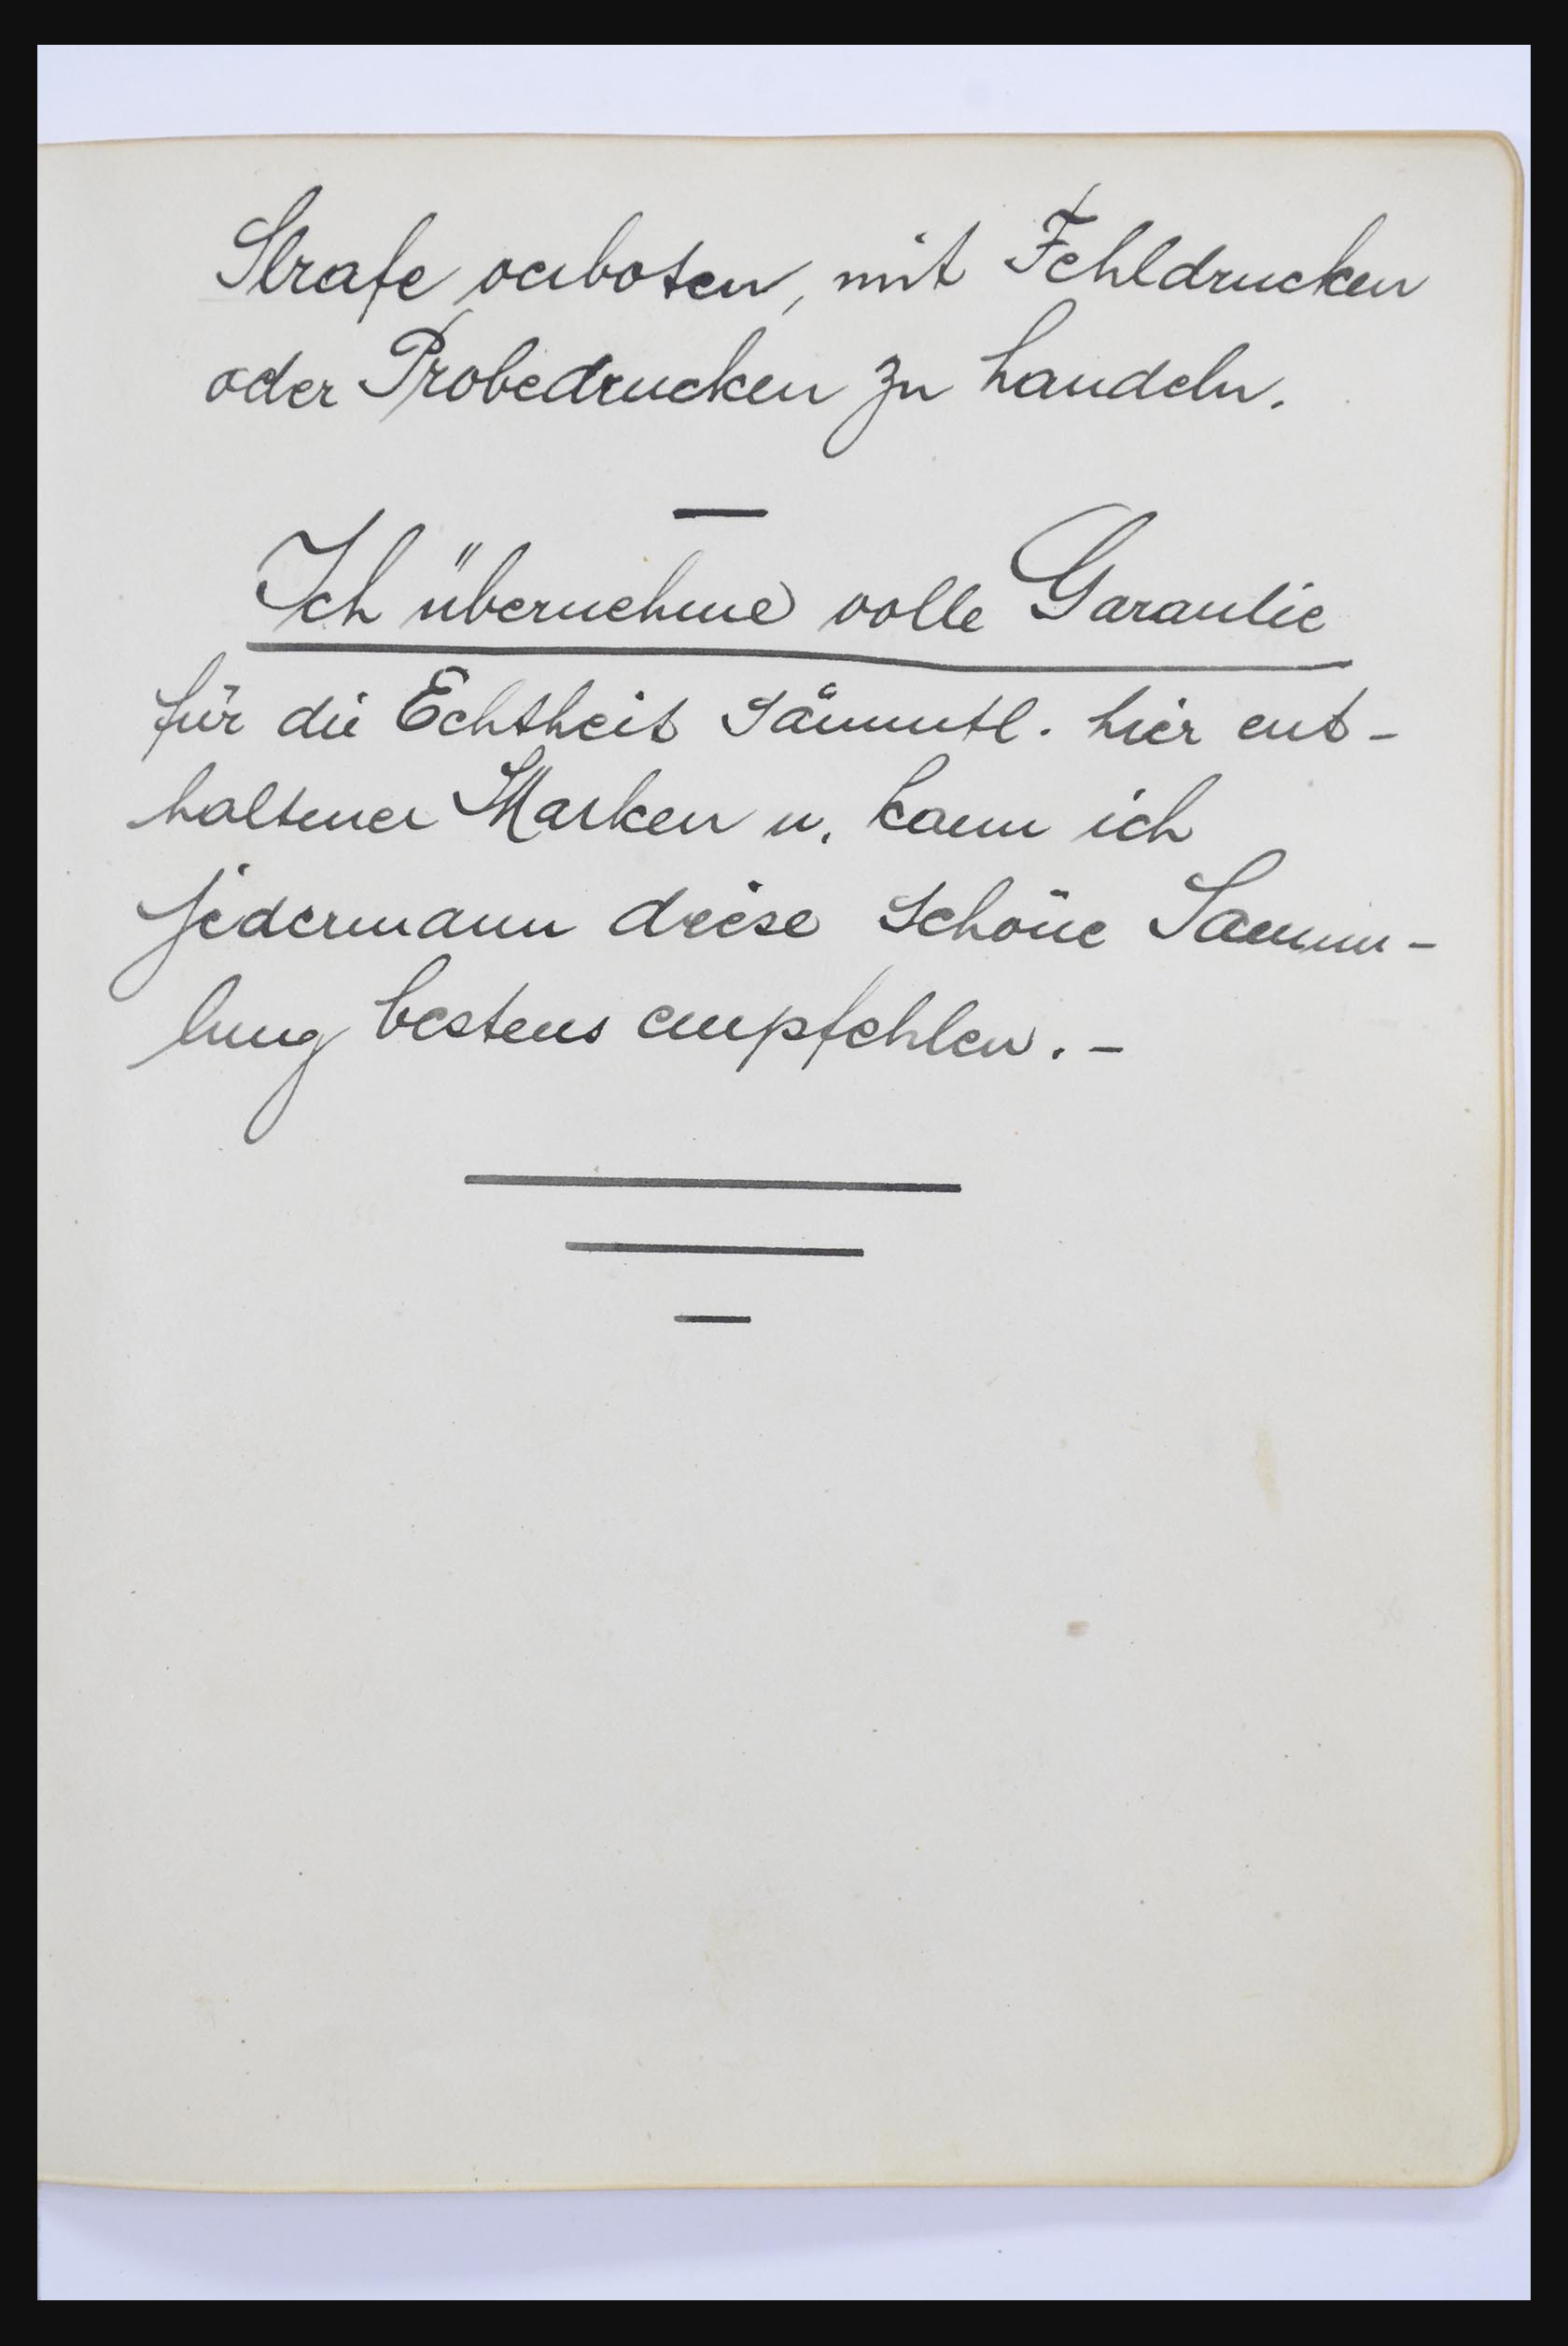 Strafe verboten, mit Fehldrucken
oder Probedrucken zu handeln.
—
Ich übernehme volle Garantie
für die Echtheit sämmtl. hier ent-
haltener Marken u. kann ich
jedermann diese schöne Samm-
lung bestens empfehlen. –